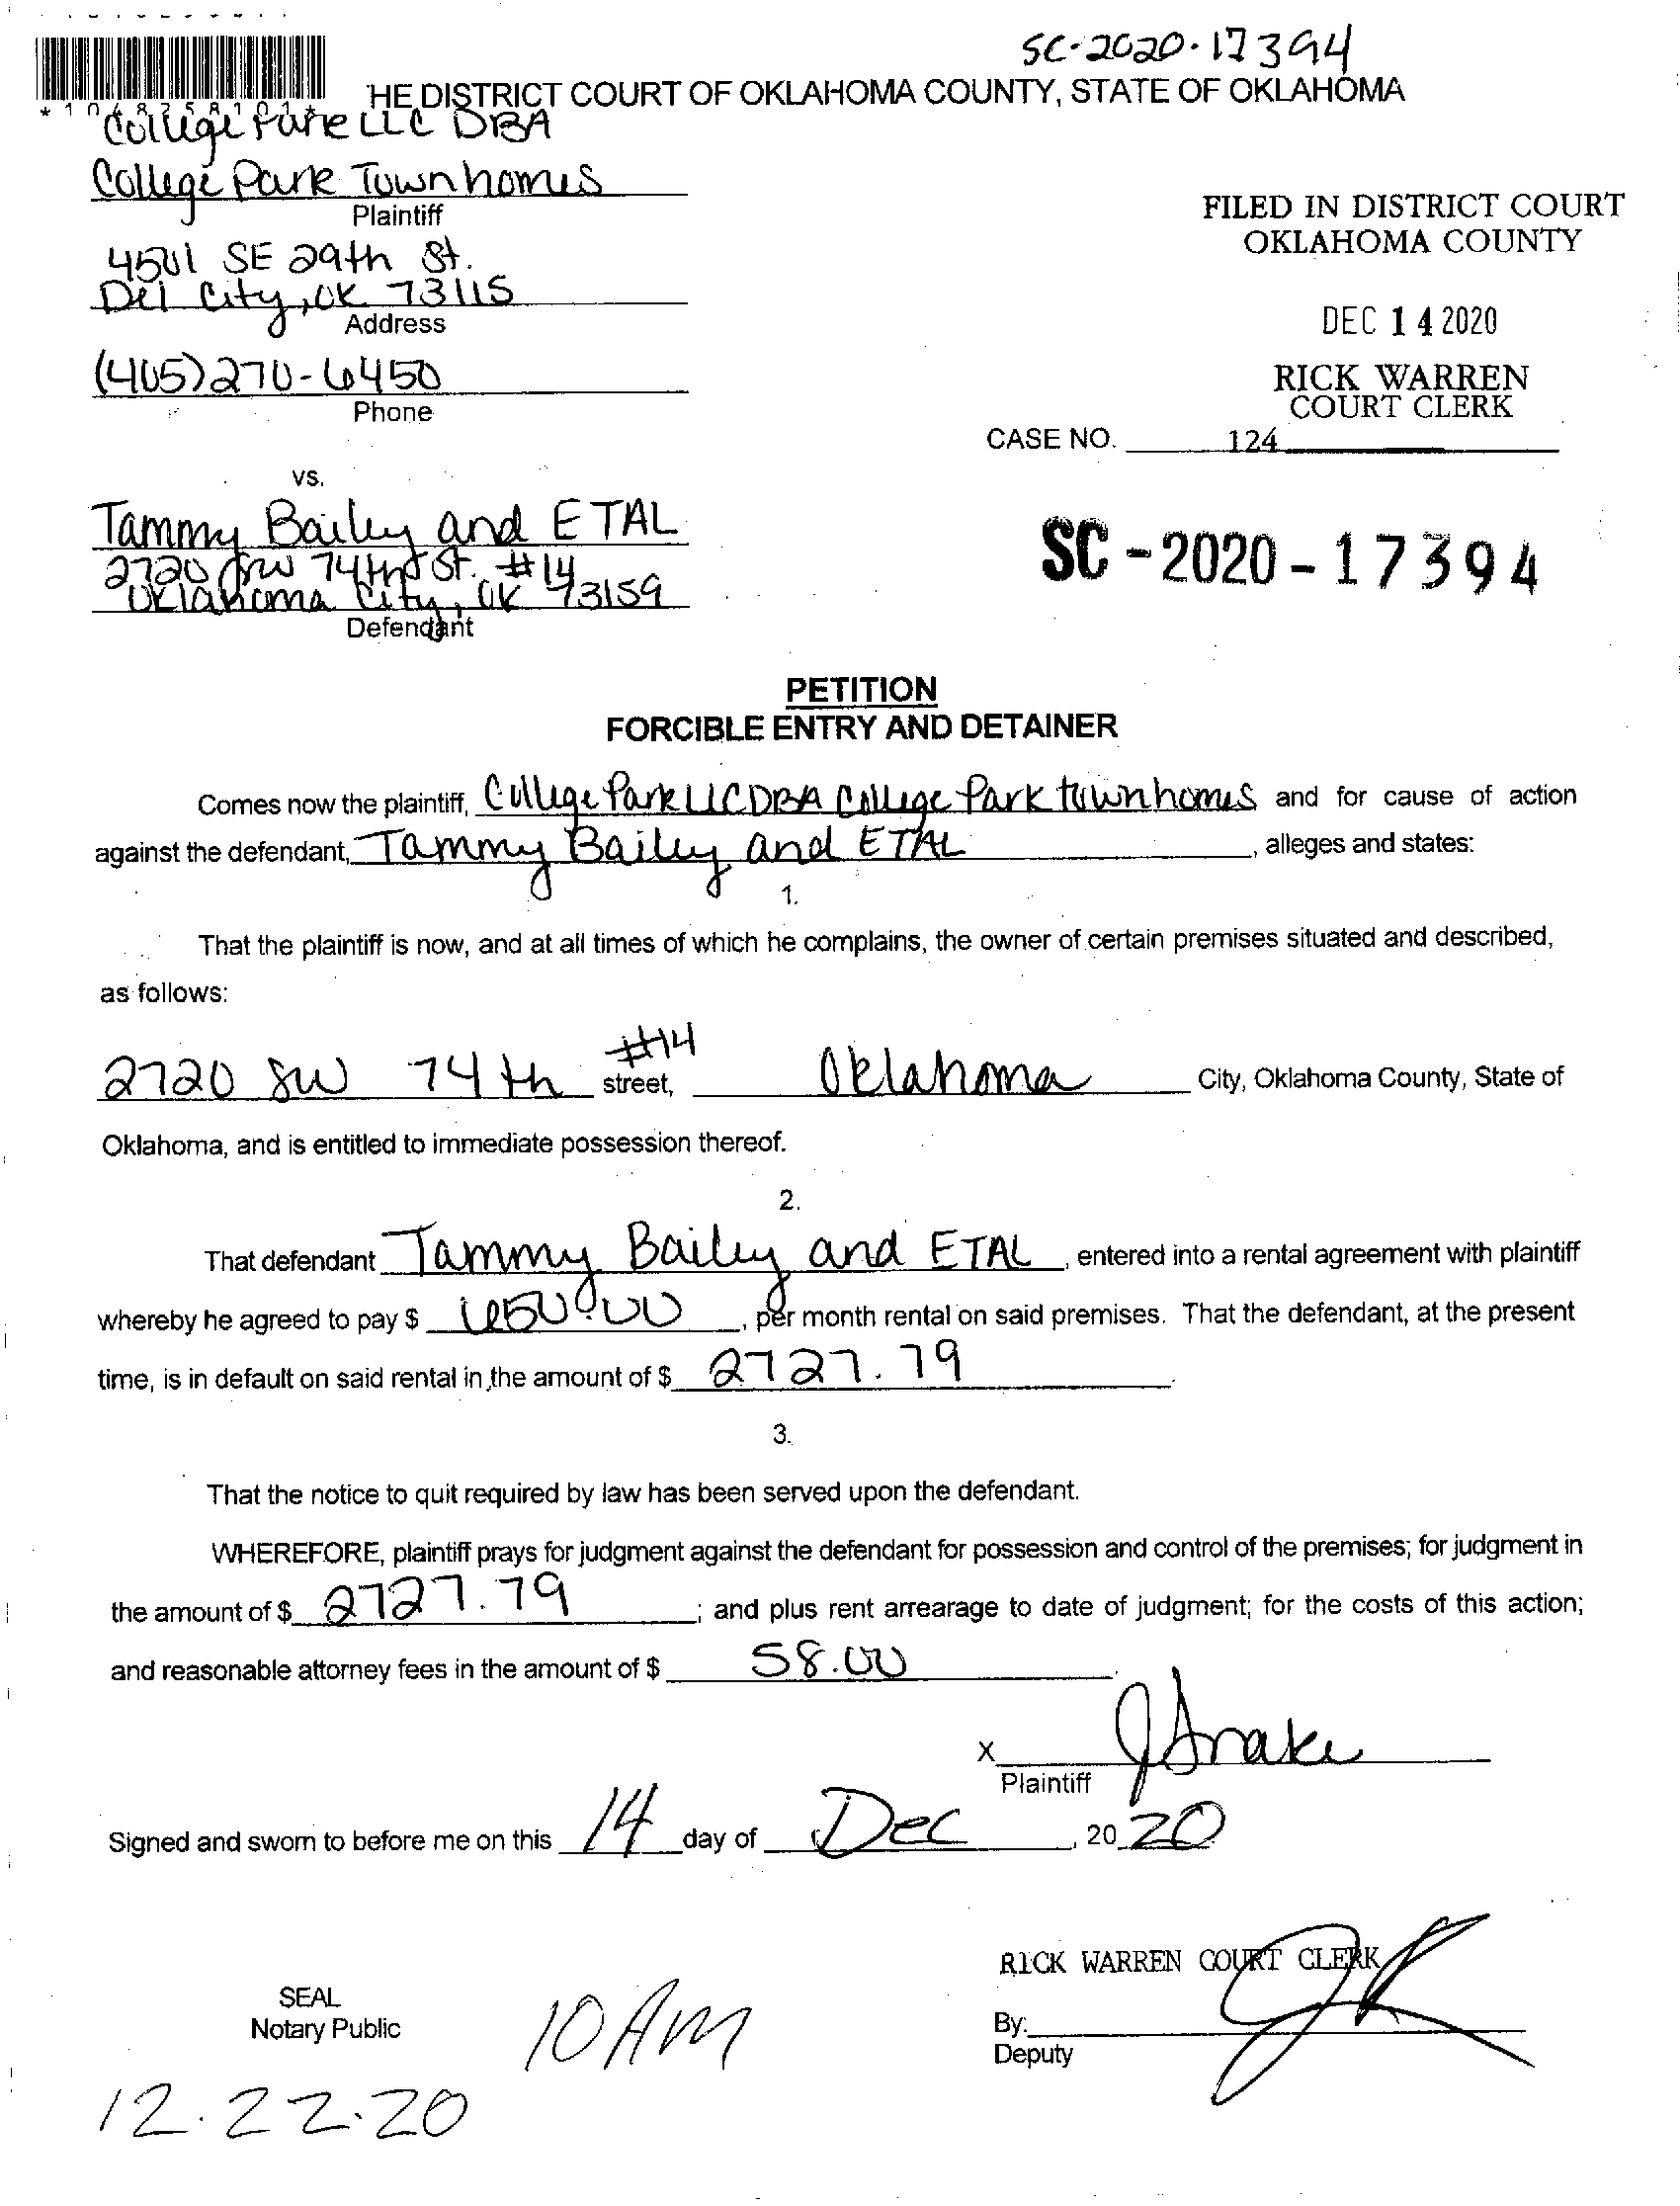 SC-2020-17394
*1048758101*
HE DISTRICT COURT OF OKLAHOMA COUNTY, STATE OF OKLAHOMA
College Park LLC DBA
College Park Townhomes
Plaintiff
4501 SE 29th St.
Del City, OK 73115
Address
(405) 270-6450
Phone
FILED IN DISTRICT COURT
OKLAHOMA COUNTY
DEC 14 2020
RICK WARREN
COURT CLERK
CASE NO. 124
vs.
Tammy Bailey and ETAL
2720 SW 74th St. #14
Oklahoma City, OK 73159
Defendant
SC-2020-17394
PETITION
FORCIBLE ENTRY AND DETAINER
Comes now the plaintiff, College Park LLC DBA College Park townhomes and for cause of action
against the defendant, Tammy Bailey and ETAL, alleges and states:
1.
That the plaintiff is now, and at all times of which he complains, the owner of certain premises situated and described,
as follows:
#14
2720 SW 74th street, Oklahoma City, Oklahoma County, State of
Oklahoma, and is entitled to immediate possession thereof.
2.
That defendant Tammy Bailey and ETAL, entered into a rental agreement with plaintiff
whereby he agreed to pay $ 650.00, per month rental on said premises. That the defendant, at the present
time, is in default on said rental in the amount of $ 2727.79.
3.
That the notice to quit required by law has been served upon the defendant.
WHEREFORE, plaintiff prays for judgment against the defendant for possession and control of the premises; for judgment in
the amount of $ 2727.79; and plus rent arrearage to date of judgment; for the costs of this action;
and reasonable attorney fees in the amount of $ 58.00.
X
Plaintiff
Signed and sworn to before me on this 14 day of Dec, 20 20
RICK WARREN COURT CLERK
SEAL
Notary Public
10 AM
By:
Deputy
12.22.20